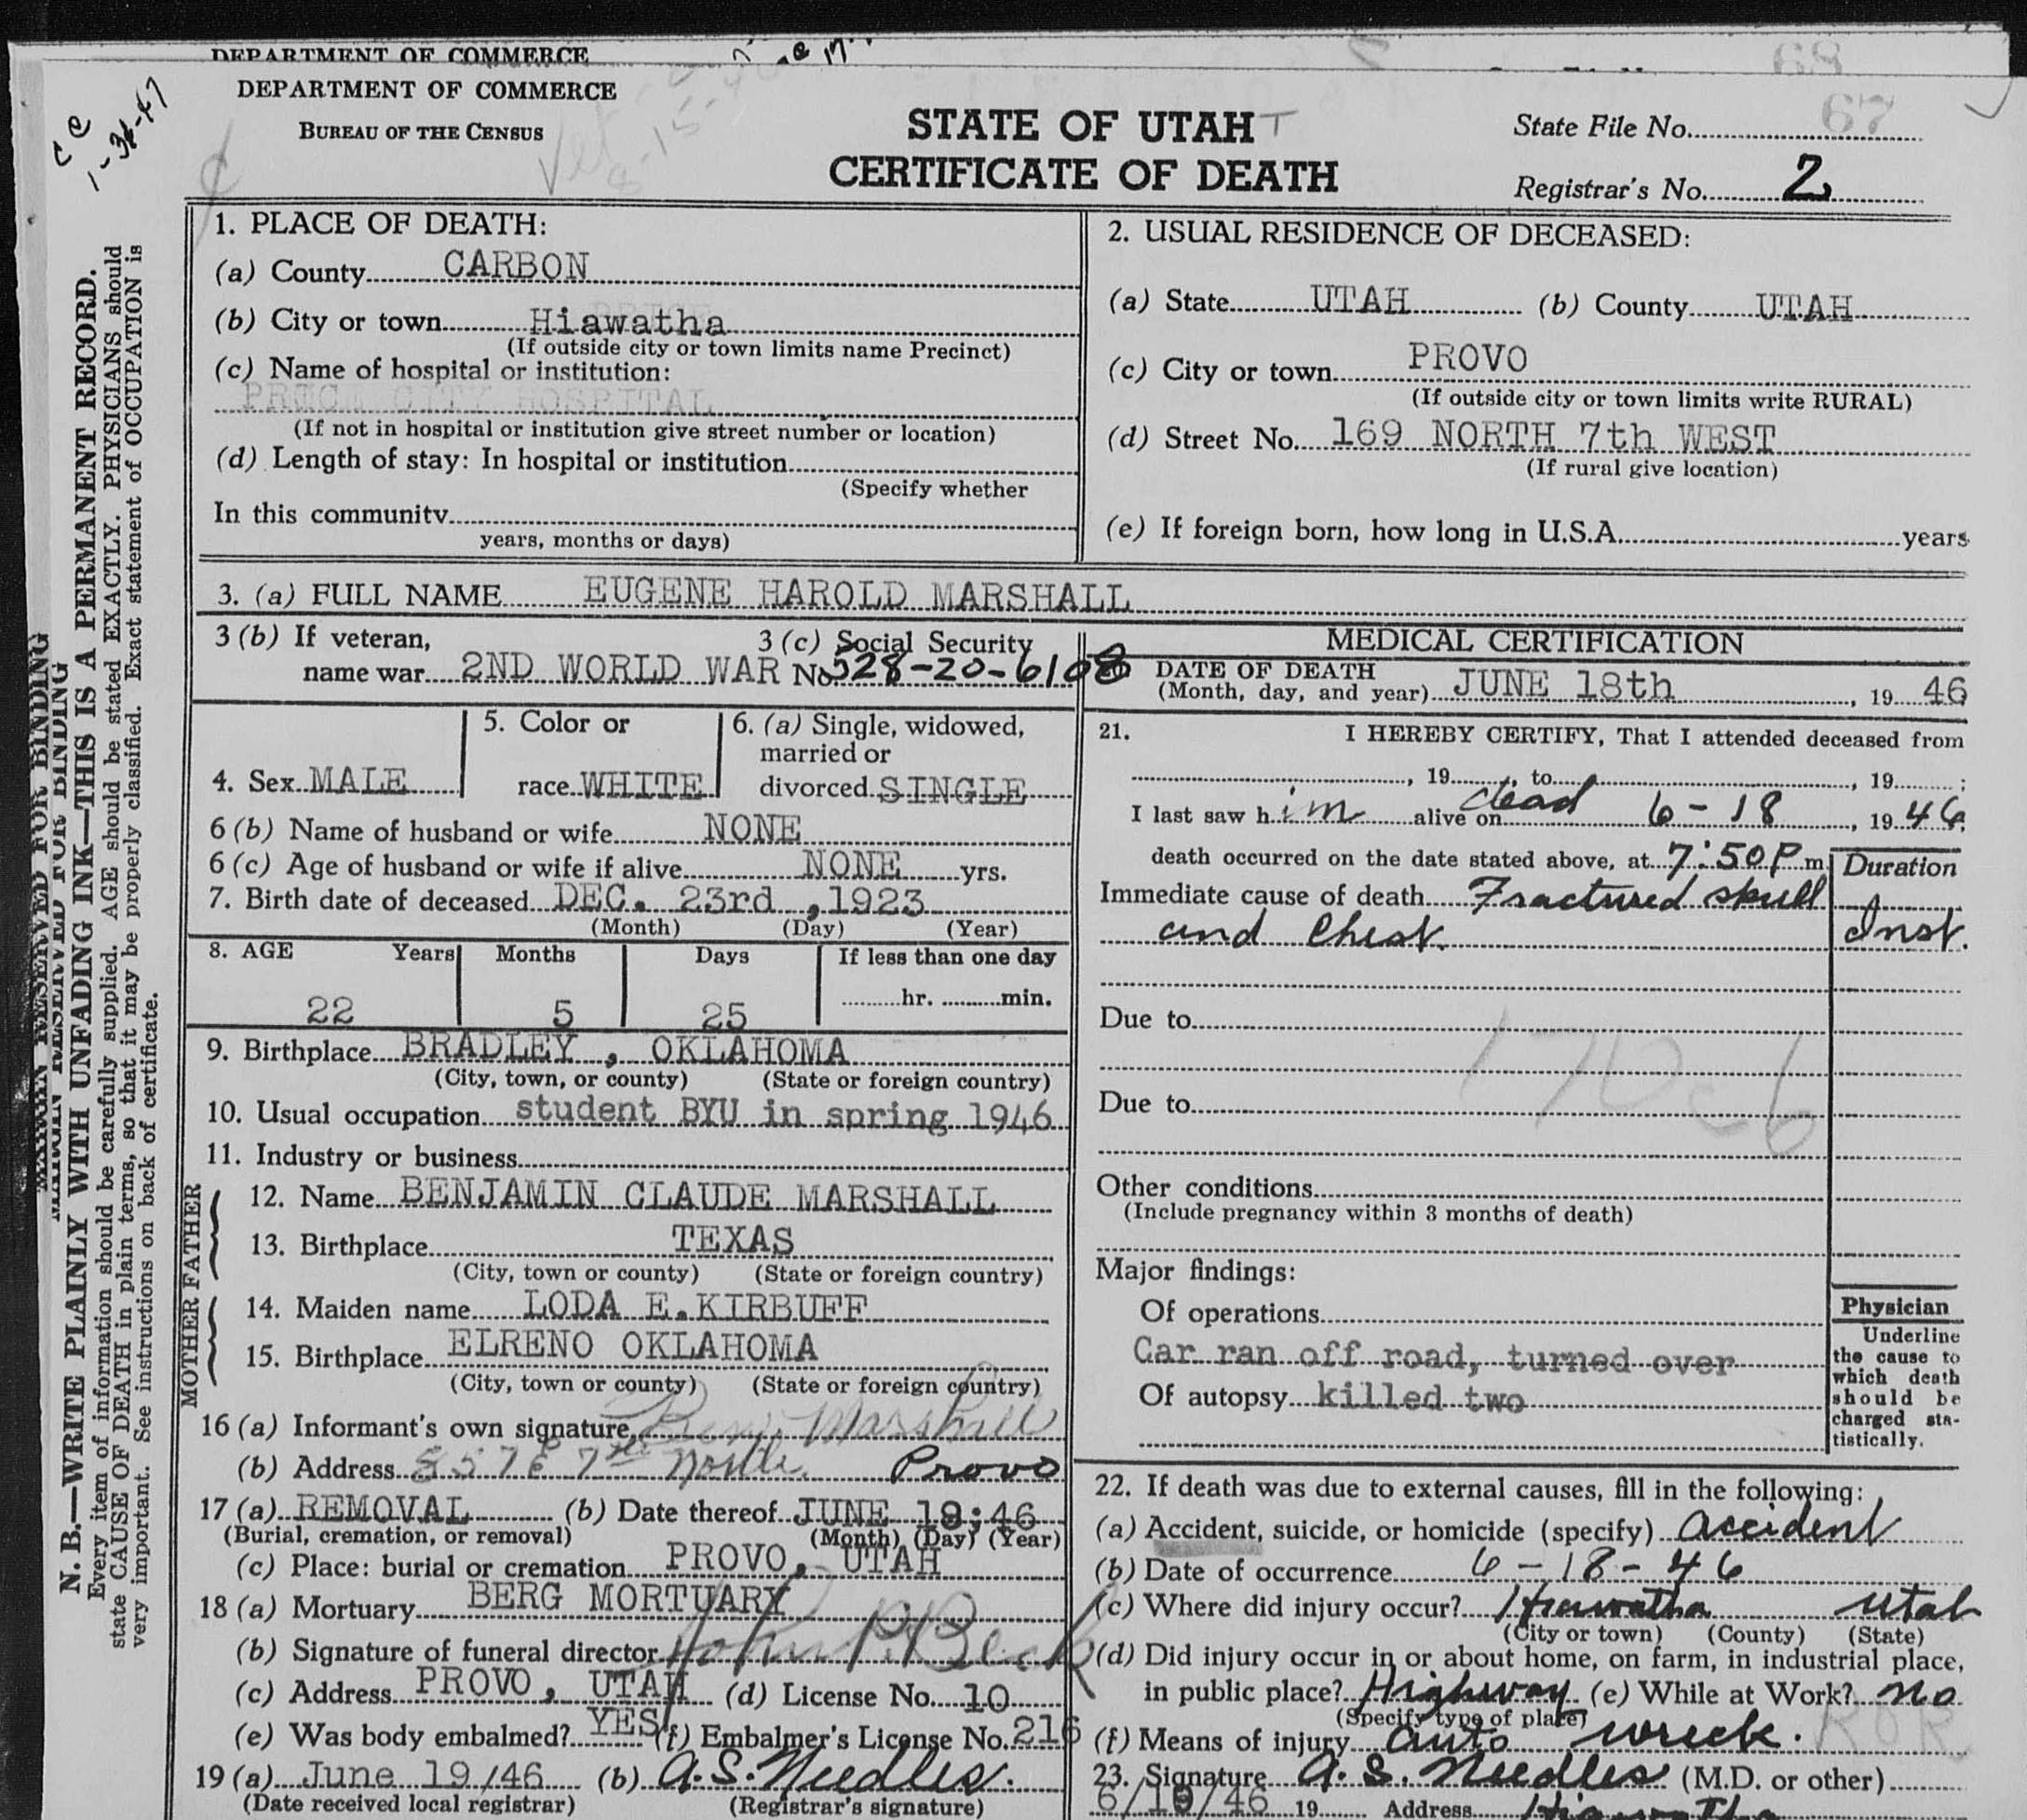 DEPARTMENT OF COMMERCE
DEPARTMENT OF COMMERCE
BUREAU OF THE CENSUS
STATE OF UTAH
CERTIFICATE OF DEATH
State File No. 67
68
Registrar's No. 2
N. B.—WRITE PLAINLY WITH UNFADING INK—THIS IS A PERMANENT RECORD.
Every item of information should be carefully supplied. AGE should be stated EXACTLY. PHYSICIANS should
state CAUSE OF DEATH in plain terms, so that it may be properly classified. Exact statement of OCCUPATION is
very important. See instructions on back of certificate.
MARGIN RESERVED FOR BINDING
MARGIN RESERVED FOR BINDING
1. PLACE OF DEATH:
(a) County CARBON
(b) City or town Hiawatha
(If outside city or town limits name Precinct)
(c) Name of hospital or institution:
PRICE CITY HOSPITAL
(If not in hospital or institution give street number or location)
(d) Length of stay: In hospital or institution
(Specify whether
In this community
years, months or days)
2. USUAL RESIDENCE OF DECEASED:
(a) State UTAH (b) County UTAH
(c) City or town PROVO
(If outside city or town limits write RURAL)
(d) Street No. 169 NORTH 7th WEST
(If rural give location)
(e) If foreign born, how long in U.S.A. years
3. (a) FULL NAME EUGENE HAROLD MARSHALL
3 (b) If veteran, 3 (c) Social Security
name war 2ND WORLD WAR No. 528-20-6108
4. Sex MALE
5. Color or
race WHITE
6. (a) Single, widowed,
married or
divorced SINGLE
6 (b) Name of husband or wife NONE
6 (c) Age of husband or wife if alive NONE yrs.
7. Birth date of deceased DEC. 23rd ,1923
(Month) (Day) (Year)
8. AGE Years Months Days If less than one day
22 5 25 hr. min.
9. Birthplace BRADLEY , OKLAHOMA
(City, town, or county) (State or foreign country)
10. Usual occupation student BYU in spring 1946
11. Industry or business
FATHER
12. Name BENJAMIN CLAUDE MARSHALL
13. Birthplace TEXAS
(City, town or county) (State or foreign country)
MOTHER
14. Maiden name LODA E.KIRBUFF
15. Birthplace ELRENO OKLAHOMA
(City, town or county) (State or foreign country)
16 (a) Informant's own signature Marshall
(b) Address 7th North Provo
17 (a) REMOVAL (b) Date thereof JUNE 19;46
(Burial, cremation, or removal) (Month) (Day) (Year)
(c) Place: burial or cremation PROVO, UTAH
18 (a) Mortuary BERG MORTUARY
(b) Signature of funeral director John P. Beck
(c) Address PROVO, UTAH (d) License No. 10
(e) Was body embalmed? YES (f) Embalmer's License No. 216
19 (a) June 19/46 (b) A.S. Needles.
(Date received local registrar) (Registrar's signature)
MEDICAL CERTIFICATION
DATE OF DEATH
(Month, day, and year) JUNE 18th , 19 46
21. I HEREBY CERTIFY, That I attended deceased from
, 19 , to , 19 ;
I last saw h im alive on dead 6-18 , 19 46
death occurred on the date stated above, at 7:50 P m. Duration
Immediate cause of death Fractured skull
and Chest. Inst.
Due to
170c6
Due to
Other conditions
(Include pregnancy within 3 months of death)
Major findings:
Of operations
Car ran off road, turned over
Of autopsy killed two
Physician
Underline
the cause to
which death
should be
charged sta-
tistically.
22. If death was due to external causes, fill in the following:
(a) Accident, suicide, or homicide (specify) accident
(b) Date of occurrence 6-18-46
(c) Where did injury occur? Hiawatha Utah
(City or town) (County) (State)
(d) Did injury occur in or about home, on farm, in industrial place,
in public place? Highway (e) While at Work? no
(Specify type of place)
(f) Means of injury auto wreck.
23. Signature A. S. Needles (M.D. or other)
6/19/46 19 Address Hiawatha